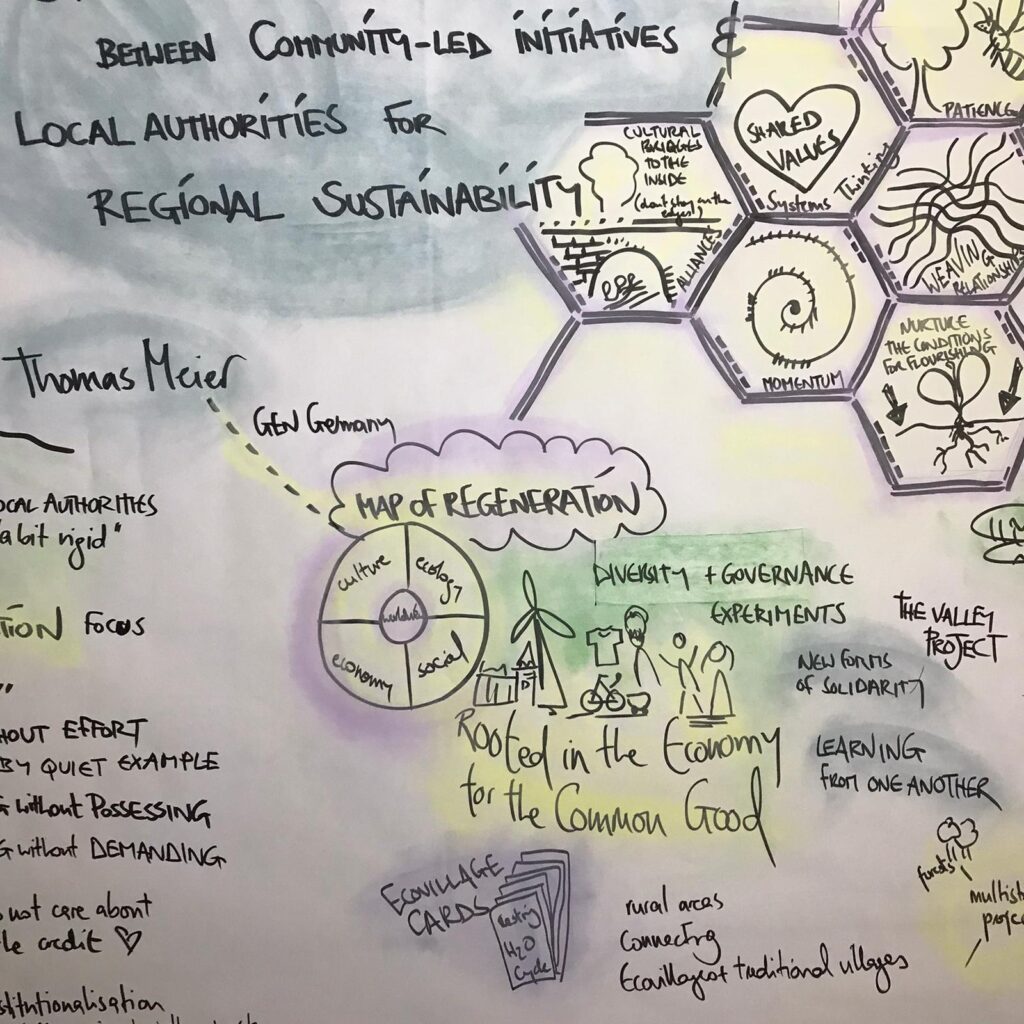 BETWEEN COMMUNITY-LED INITIATIVES &
LOCAL AUTHORITIES FOR
REGIONAL SUSTAINABILITY
CULTURAL
BRIDGES
TO THE
INSIDE
(don't stay on the
edges!)
ALLIANCES
SHARED
VALUES
Systems Thinking
PATIENCE
WEAVING
RELATIONSHIPS
MOMENTUM
NURTURE
THE CONDITIONS
FOR FLOURISHING
Thomas Meier
GEN Germany
MAP OF REGENERATION
culture
ecology
worldview
economy
social
OCAL AUTHORITIES
"a bit rigid"
TION FOCUS
HOUT EFFORT
BY QUIET EXAMPLE
G without POSSESSING
G without DEMANDING
not care about
credit
stitutionalisation
DIVERSITY + GOVERNANCE
EXPERIMENTS
THE VALLEY
PROJECT
NEW FORMS
OF SOLIDARITY
LEARNING
FROM ONE ANOTHER
Rooted in the Economy
for the Common Good
ECOVILLAGE
CARDS
H2O
Cycle
rural areas
Connecting
Ecovillages + traditional villages
multist
projec